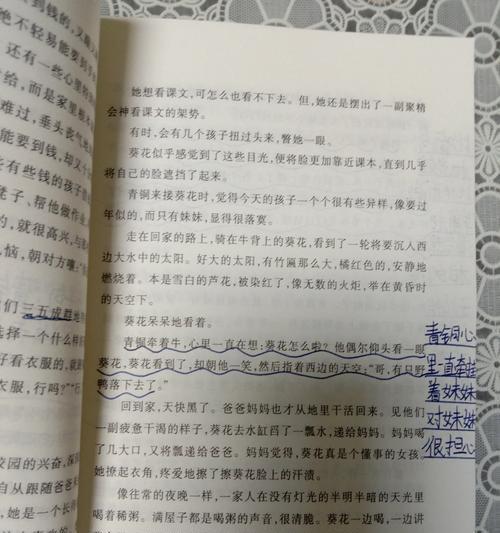 到钱的，又
绝不轻易能要到
还有一些心里
给，而是家里根
难过，垂头丧气地
能要到钱，却又
有些钱的孩子
凳子、帮他做作业
的，就很高兴，与
恼，朝对方嚷：“
们三五成群地
选择一个什么样
好看衣服的，就
衣服，行吗？”
校园的兴奋，深
自从跟随爸爸
她，是一个长
她想看课文，可怎么也看不下去。但，她还是摆出了一副聚精
会神看课文的架势。
有时，会有几个孩子扭过头来，瞥她一眼。
葵花似乎感觉到了这些目光，便将脸更加靠近课本，直到几乎
将自己的脸遮挡了起来。
青铜来接葵花时，觉得今天的孩子一个个很有些异样，像要过
年似的，而只有妹妹，显得很落寞。
走在回家的路上，骑在牛背上的葵花，看到了一轮将要沉入西
边大水中的太阳。好大的太阳，有竹匾那么大，橘红色的，安静地
燃烧着。本是雪白的芦花，被染红了，像无数的火炬，举在黄昏时
的天空下。
葵花呆呆地看着。
青铜牵着牛，心里一直在想：葵花怎么啦？他偶尔仰头看一眼
葵花，葵花看到了，却朝他一笑，然后指着西边的天空：“哥，有只野
鸭落下去了。”
回到家，天快黑了。爸爸妈妈也才从地里干活回来。见他们
一副疲惫干渴的样子，葵花去水缸舀了一瓢水，递给妈妈。妈妈喝
了几大口，又将瓢递给爸爸。妈妈觉得，葵花真是个懂事的女孩。
她撩起衣角，疼爱地擦了擦葵花脸上的汗渍。
像往常的夜晚一样，一家人在没有灯光的半明半暗的天光里
喝着稀粥。满屋子都是喝粥的声音，很清脆。葵花一边喝，一边讲
青铜心
里一直牵挂
着妹妹
对妹妹
很担心